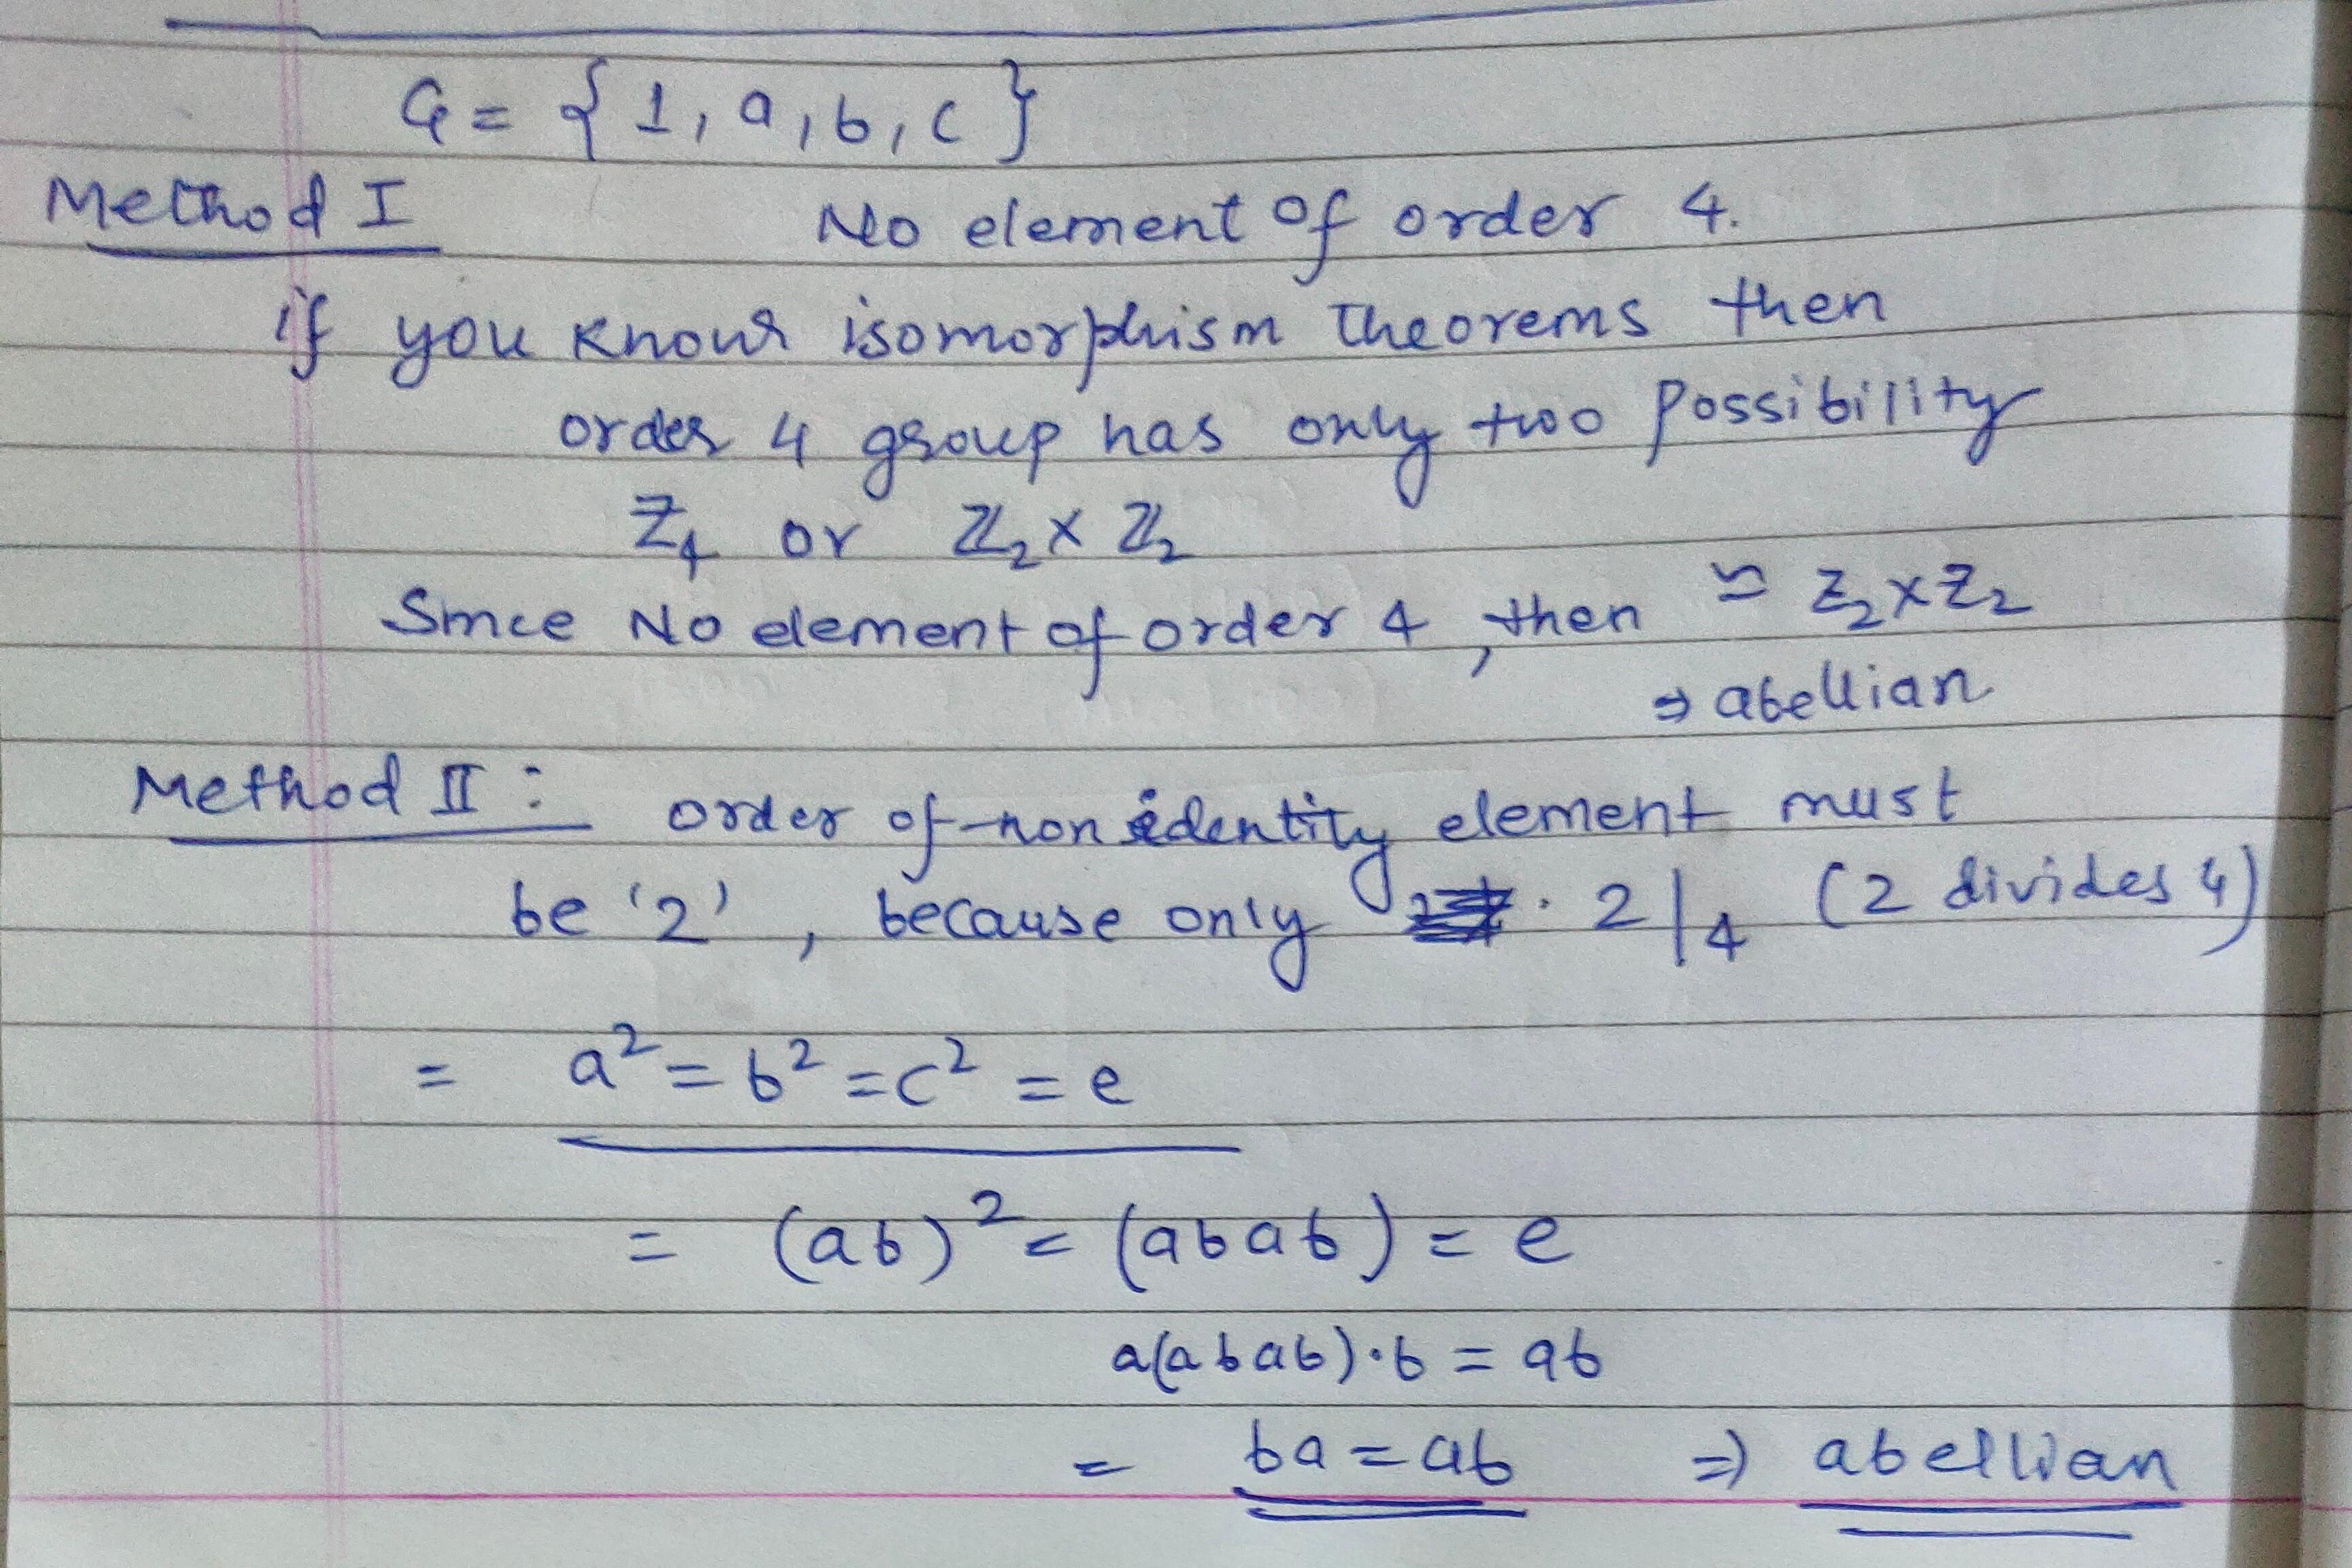 G = { 1, a, b, c }
Method I No element of order 4.
if you know isomorphism theorems then
order 4 group has only two possibility
Z₄ or ℤ₂ × ℤ₂
Since No element of order 4, then ≃ Z₂ × Z₂
⇒ abellian
Method II : order of non identity element must
be '2', because only 2 | 4 (2 divides 4)
= a² = b² = c² = e
= (ab)² = (abab) = e
a(abab)·b = ab
= ba = ab ⇒ abellian